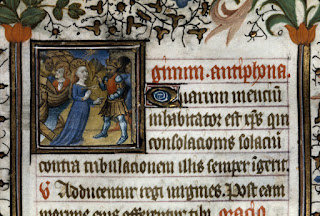 ginum. antiphona
Quarum mencium
inhabitator est xps qui
consolacionis solaciū
contra tribulacionem illis semper igerit.
V Adducentur regi virgines. Post eam